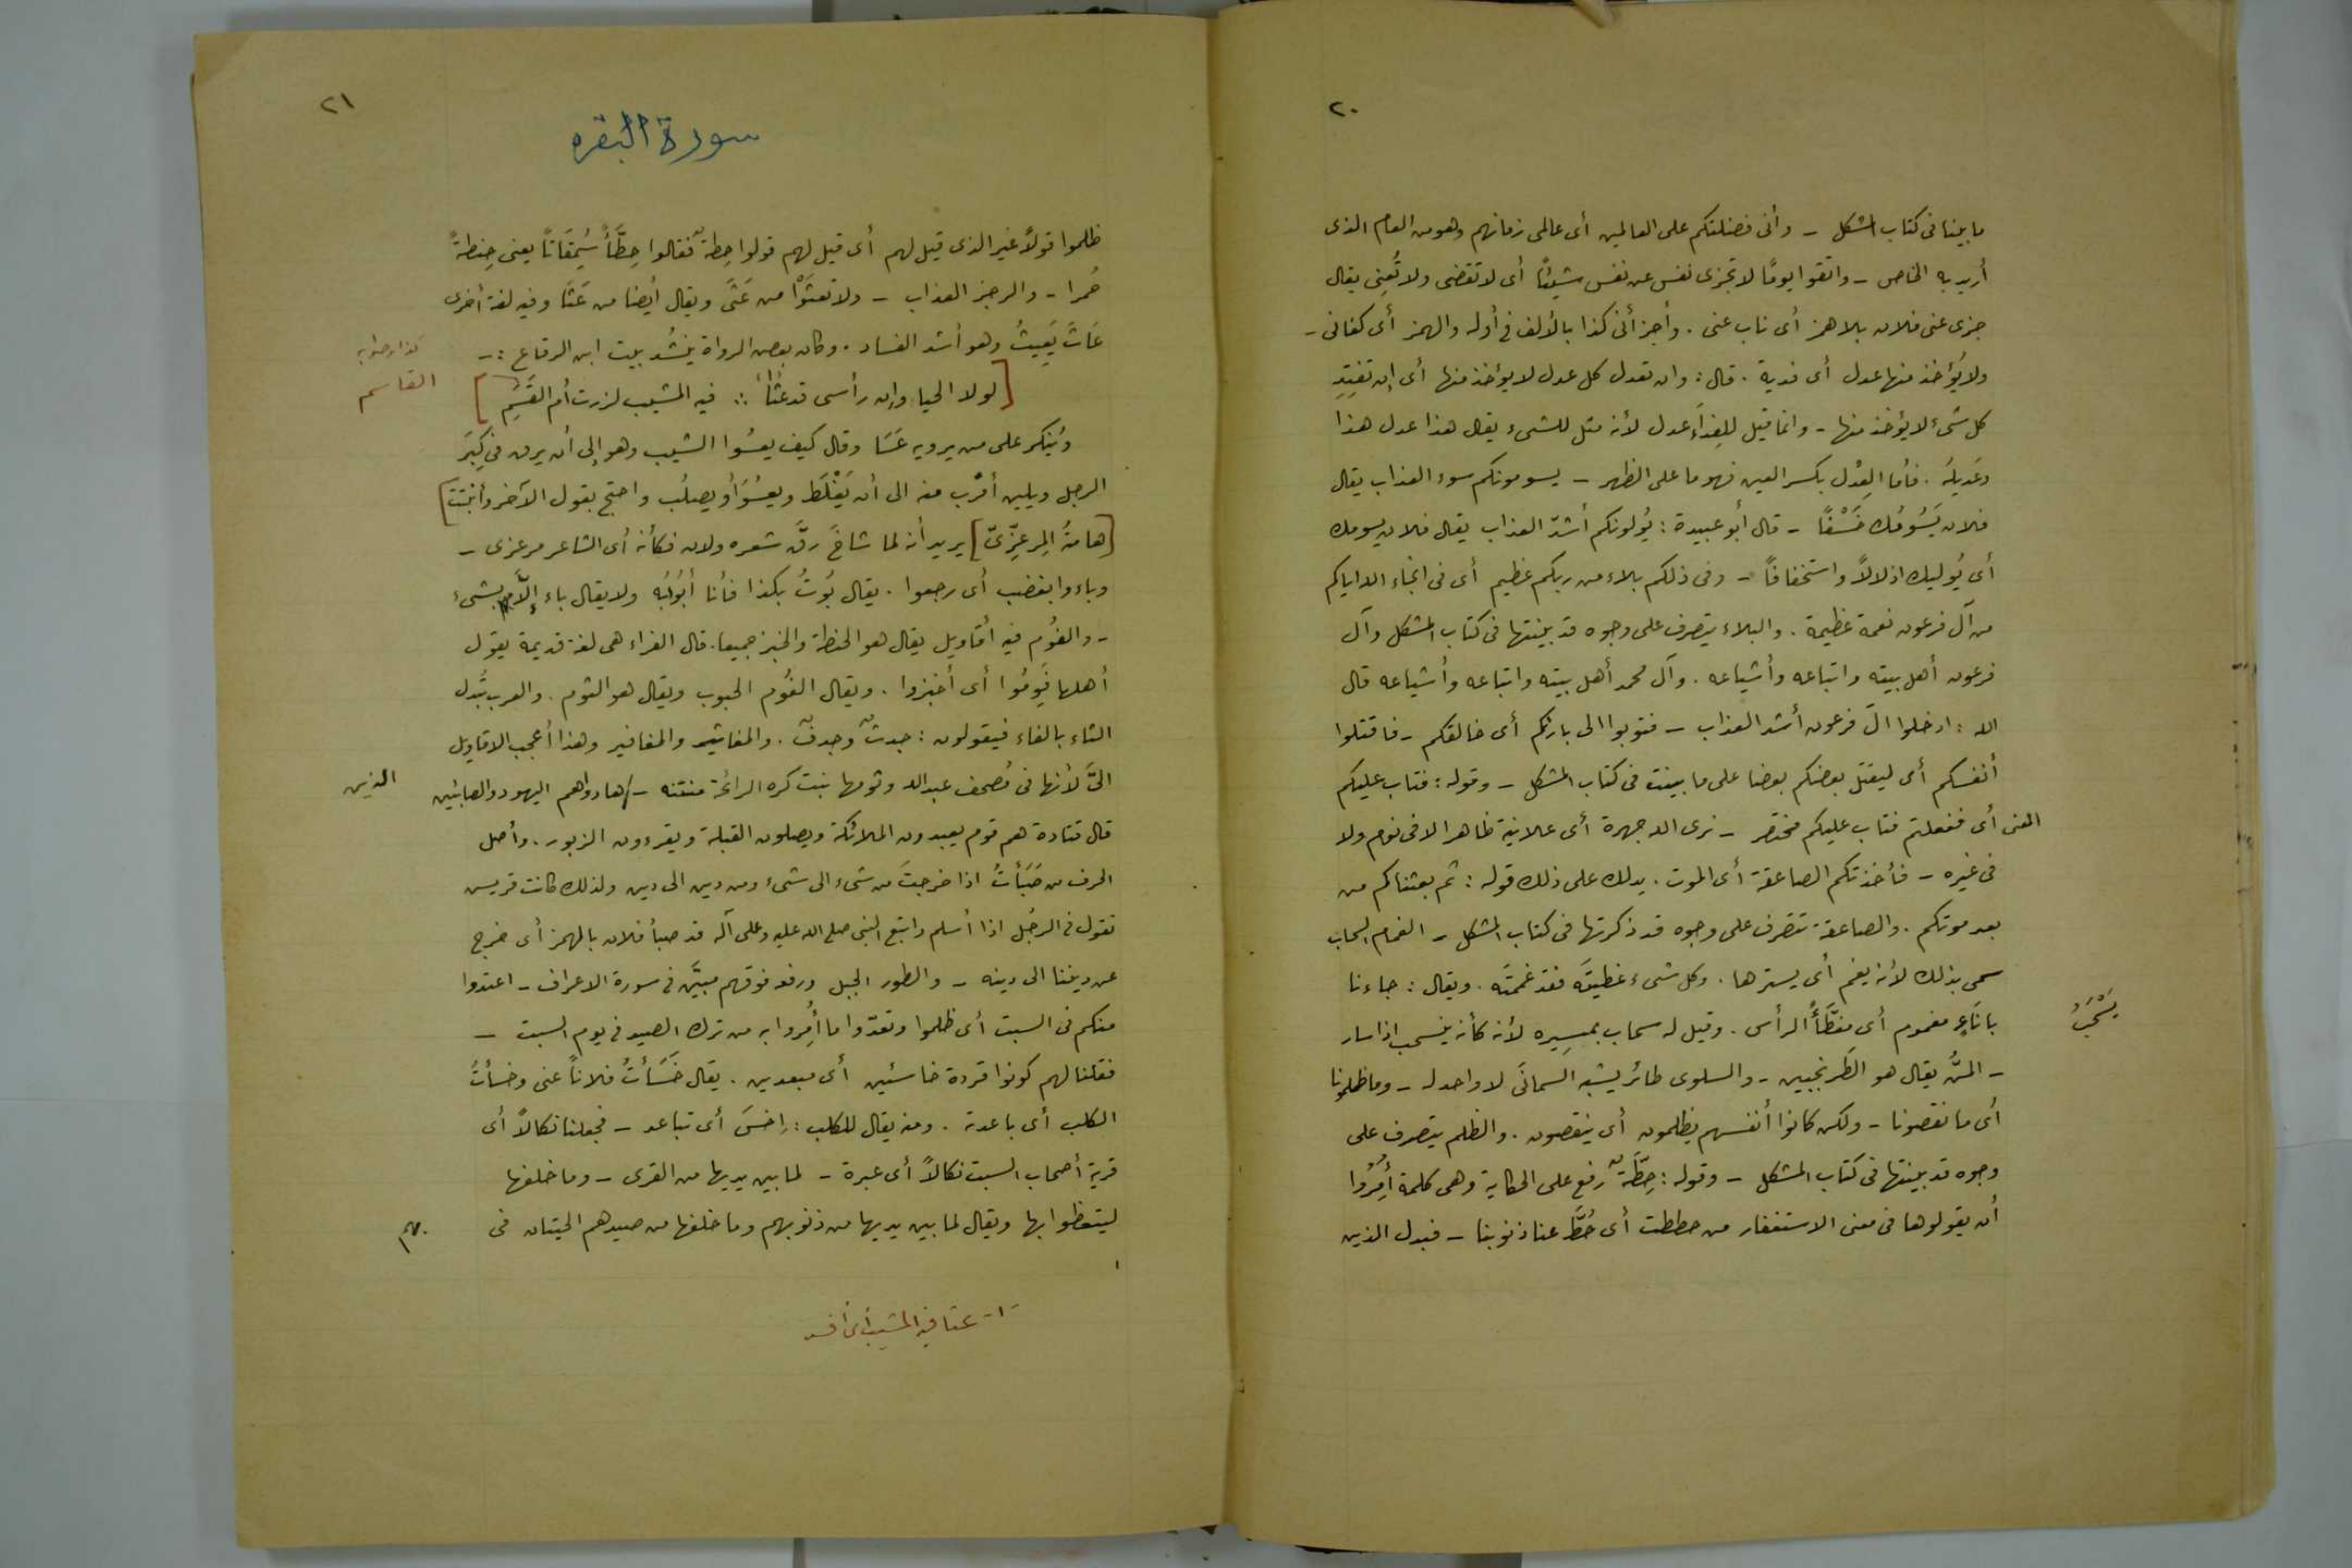 ٢٠
ما بينا فى كتاب المشكل - وأنى فضلتكم على العالمين أى عالمى زمانهم وهو من العام الذى
أريد به الخاص - واتقوا يومًا لا تجزى نفس عن نفس شيئًا أى لا تقضى ولا تُغنِى يقال
جزى عنى فلان بلا همز أى ناب عنى . وأجزأنى كذا بالألف فى أوله والهمز أى كفانى -
ولا يُؤخذ منها عدل أى فدية . قال : وان تعدل كل عدل لا يؤخذ منها أى إن تفتدِ
كل شىء لا يؤخذ منها - وانما قيل للفداء عدل لأنه مثل للشىء يقال هذا عدل هذا
وعَديلهُ . فأما العِدْل بكسر العين فهو ما على الظهر - يسومونكم سوء العذاب يقال
فلان يَسُومُك خَسْفًا - قال أبو عبيدة : يُولونكم أشدّ العذاب يقال فلان يسومك
أى يُوليك اذلالاً واستخفافًا - وفى ذلكم بلاء من ربكم عظيم أى فى انجاء الله اياكم
من آل فرعون نعمة عظيمة . والبلاء يتصرف على وجوه قد بينتها فى كتاب المشكل وآل
فرعون أهل بيته واتباعه وأشياعه . وآل محمد أهل بيته واتباعه وأشياعه قال
الله : ادخلوا آل فرعون أشد العذاب - فتوبوا الى بارئكم أى خالقكم - فاقتلوا
أنفسكم أى ليقتل بعضكم بعضا على ما بينت فى كتاب المشكل - وقوله : فتاب عليكم
المعنى أى ففعلتم فتاب عليكم مختصر - نرى الله جهرة أى علانية ظاهرا لا فى نوم ولا
فى غيره - فأخذتكم الصاعقة أى الموت . يدلك على ذلك قوله : ثم بعثناكم من
بعد موتكم . والصاعقة تتصرف على وجوه قد ذكرتها فى كتاب المشكل - الغمام السحاب
سمى بذلك لأنه يغم أى يسترها . وكل شىء غطيتَه فقد غممتَه . ويقال : جاءنا
باناءٍ مغموم أى مغطَّأُ الرأس . وقيل له سحاب بمسِيره لأنه كأنه ينسحب اذا سار
يَسْحَبُ
- المنُّ يقال هو الطَرنجبين - والسلوى طائر يشبه السمانَى لا واحد له - وما ظلمونا
أى ما نقصونا - ولكن كانوا أنفسهم يظلمون أى ينقصون . والظلم يتصرف على
وجوه قد بينتها فى كتاب المشكل - وقوله : حِطَّةٌ رفع على الحكاية وهى كلمة أُمِرُوا
أن يقولوها فى معنى الاستغفار من حططت أى حُطَّ عنا ذنوبنا - فبدل الذين
٢١
سورة البقره
ظلموا قولاً غير الذى قيل لهم أى قيل لهم قولوا حِطةٌ فقالوا حِطَّأ سُمقَاتاً يعنى حِنطةً
حُمرا - والرجز العذاب - ولا تعثَوْا من عَثَى ويقال أيضا من عَثَا وفيه لغة أخرى
عَاثَ يَعِيثُ وهو أشد الفساد . وكان بعض الرواة ينشُد بيت ابن الرقاع : -
كذا وصوابه
[لولا الحيا وان رأسى قد عثَا(١) :: فيه المشيب لزرت أم القَسِم]
القاسم
ويُنكر على من يرويه عَسَا وقال كيف يعسُوا الشيب وهو إلى أن يرق فى كِبَر
الرجل ويلين أقرب منه الى أن يَغْلظ ويعسُوَ أو يصلُب واحتج بقول الآخر وأنبتت]
[هامتُ المِرعِزّىّ] يريد أنه لما شاخَ رقَّ شعره ولان فكأنه أى الشاعر مرعزى -
وباءوا بغضب أى رجعوا . يقال بُوتُ بكذا فأنا أبُوءُبه ولا يقال باء إلاَّ بشىء
- والفُوم فيه أقاويل يقال هو الحنطة والخبز جميعا . قال الفراء هى لغة قديمة يقول
أهلها فَوِمُوا أى أخبزوا . ويقال الفُوم الحبوب ويقال هو الثوم . والعرب تُبدل
الثاء بالفاء فيقولون : جدثٌ وجدفٌ . والمغاثير والمغافير وهذا أعجب الاقاويل
الىَّ لأنها فى مُصحف عبد الله وثومها نبت كره الرائحة منتنه - / هادوا هم اليهود والصابئين
الذين
قال قتادة هم قوم يعبدون الملائكة ويصلون القبلة ويقرءون الزبور . وأصل
الحرف من صَبَأتُ اذا خرجتَ من شىء الى شىء ومن دين الى دين ولذلك كانت قريس
تقول فى الرجُل اذا أسلم واتبع النبى صلى الله عليه وعلى آله قد صبأ فلان بالهمز أى خرج
عن ديننا الى دينه - والطور الجبل ورفعه فوقهم مبيَّن فى سورة الاعراف - اعتدوا
منكم فى السبت أى ظلموا وتعدّوا ما أُمِروا به من ترك الصيد فى يوم السبت -
فقلنا لهم كونوا قردة خاسئين أى مبعدين . يقال خَسَأتُ فلاناً عنى وخسأتُ
الكلب أى باعدته . ومنه يقال للكلب : اِخسَ أى تباعد - فجعلنا نكالاً أى
قرية أصحاب السبت نكالاً أى عبرة - لما بين يديها من القرى - وما خلفها
ليتعظوا بها ويقال لما بين يديها من ذنوبهم وما خلفها من صيدهم الحيتان فى
-١- عثا فيه المشيب أى أفسد